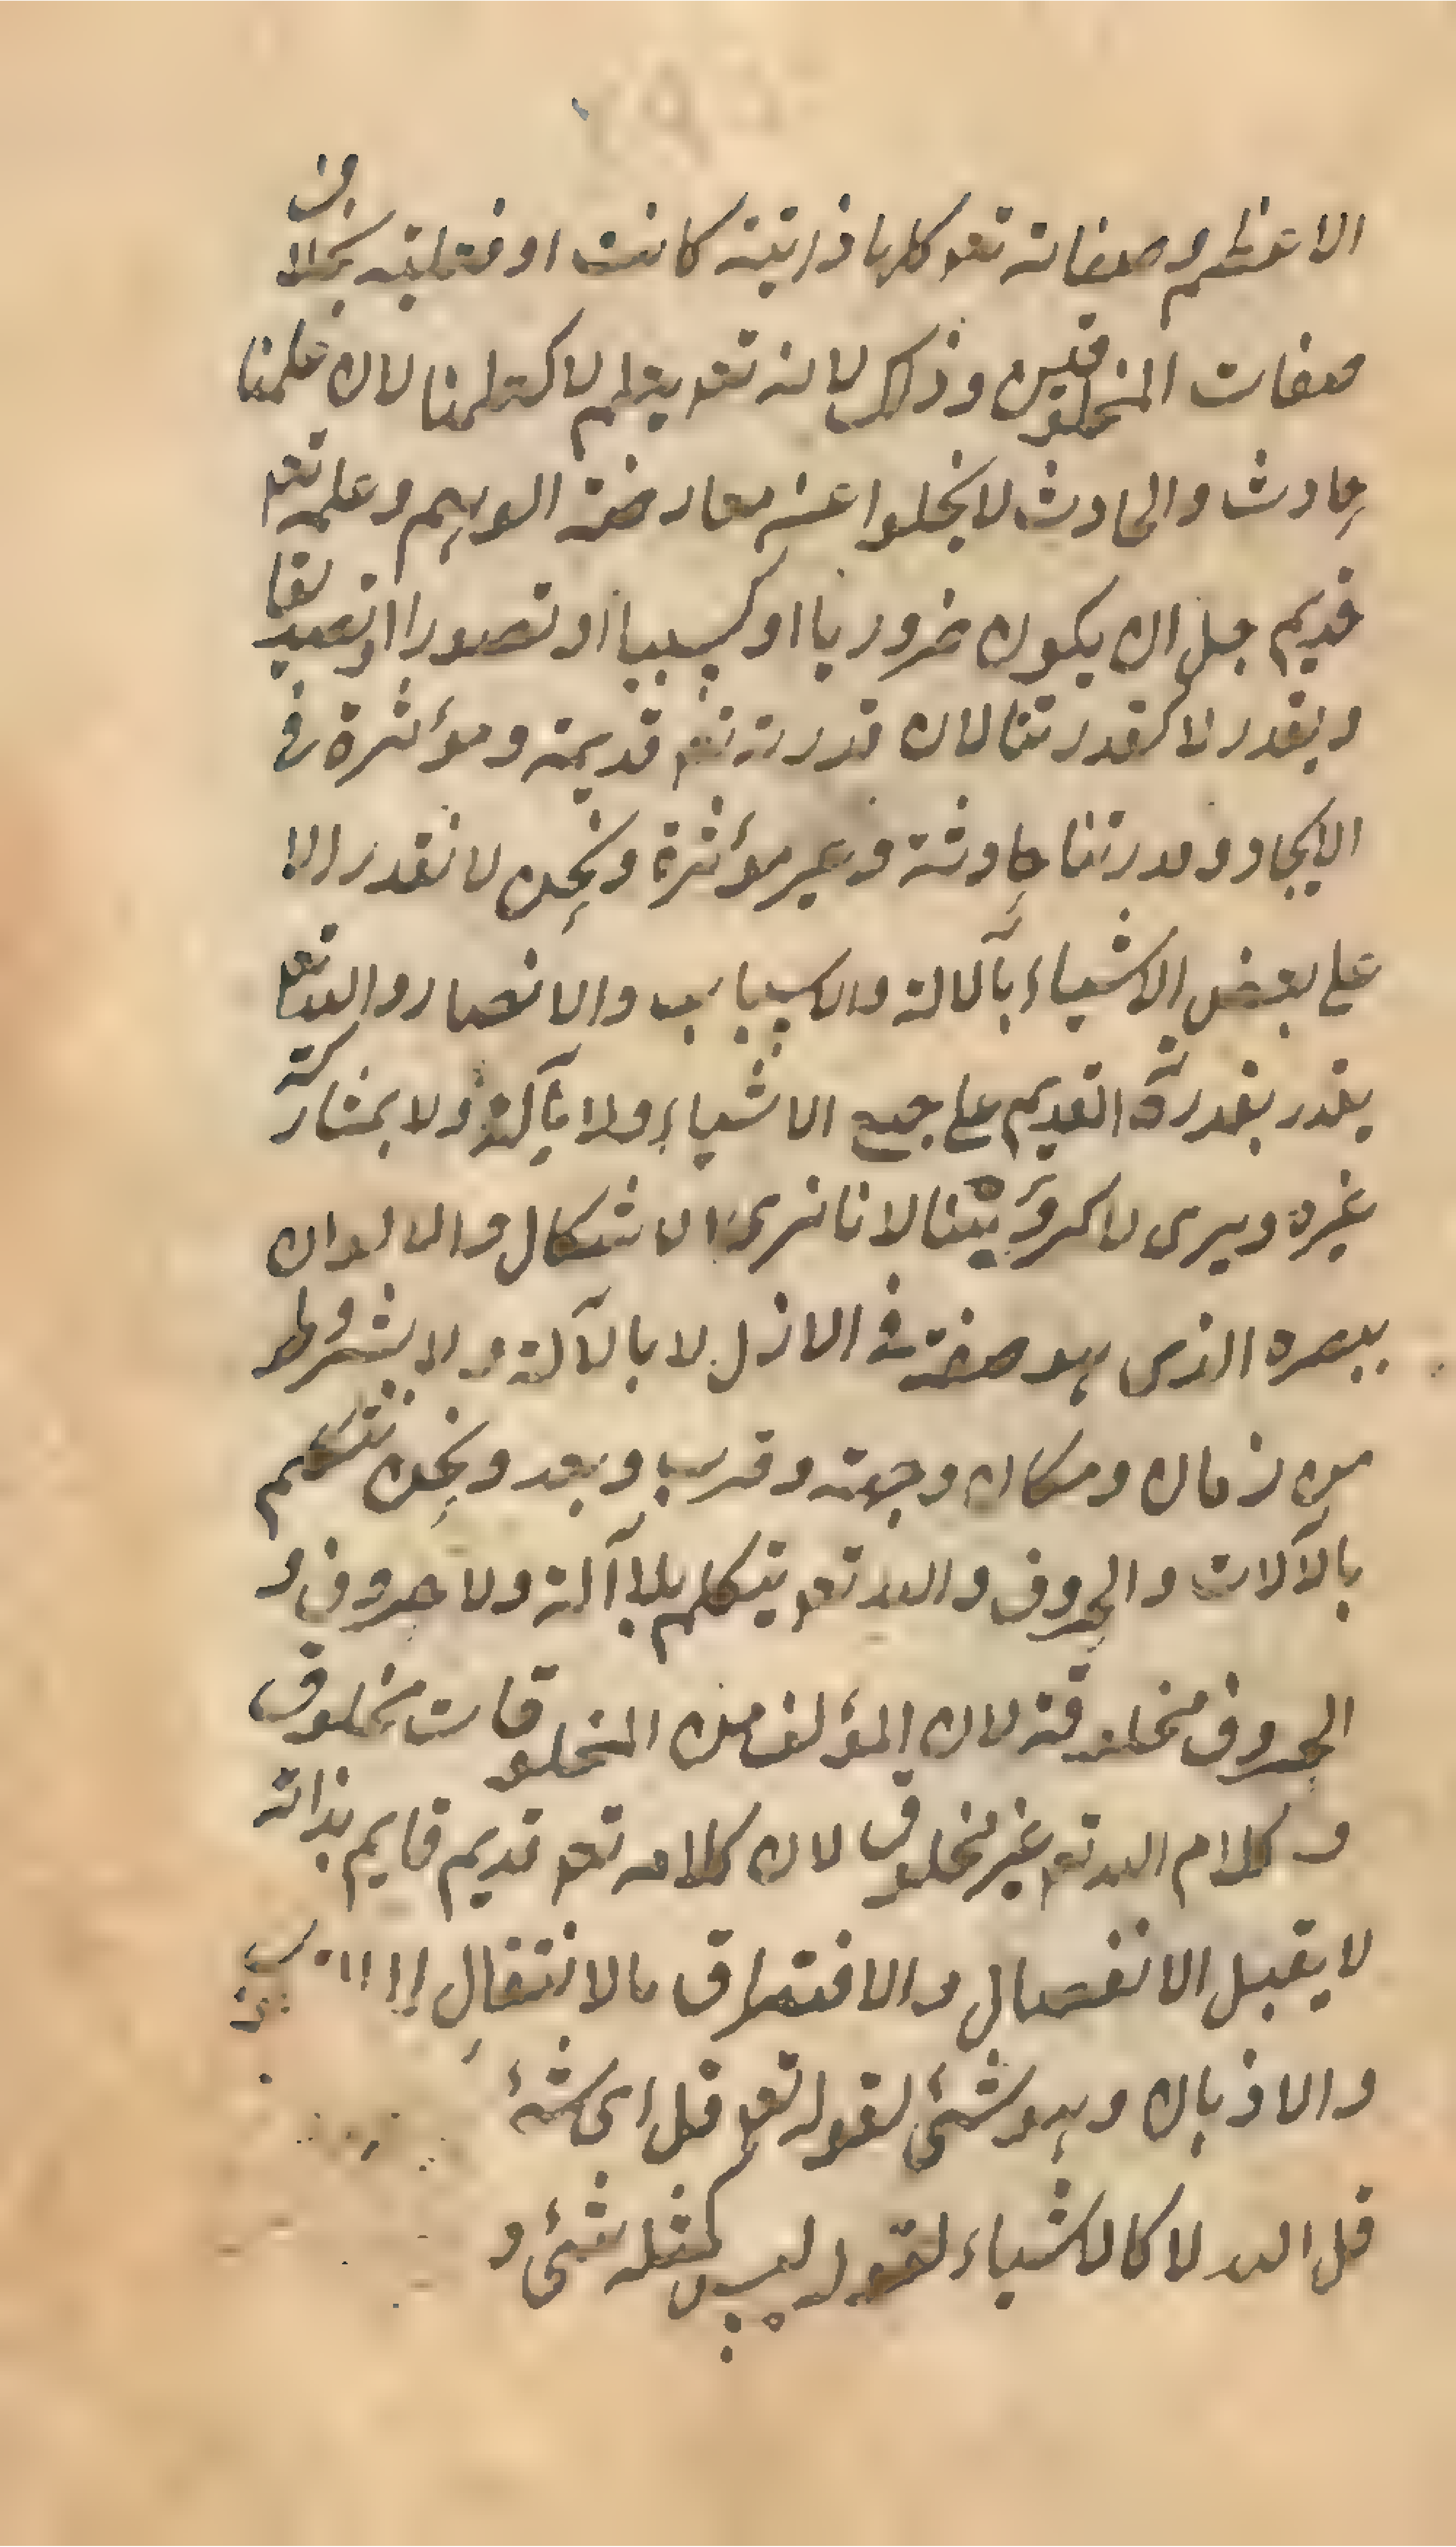 الاعظم وصفاته تعو كلها ذاتية كانت او فعلية بخلاف
صفات المخلوقين وذلك لانه تعو يعلم لا كعلمنا لان علمنا
حادث والحادث لا يخلوا عن معارضة الوهم وعلمه تعو
قديم جل ان يكون ضروريا او كسبيا او تصورا او تصديقا
ويقدر لا كقدرتنا لان قدرته تعو قديمة ومؤثرة في
الايجاد وقدرتنا حادثة وغير مؤثرة ونحن لا نقدر الا
على بعض الاشياء بآلالة والاسباب والانصار والله تعو
يقدر بقدرة القديم على جميع الاشياء ولا بآلة ولا بمشاركة
غيره ويرى لا كرؤيتنا لانا نرى الاشكال والالوان
ببصره الذي هو صفته في الازل لا بالآلة ولا بشروط
من زمان ومكان وجهة وقرب وبعد ونحن نتكلم
بالآلات والحروف والله تعو يتكلم بلا آلة ولا حروف و
الحروف مخلوقة لان المؤلف من المخلوقات مخلوق
وكلام الله تعو غير مخلوق لان كلامه تعو قديم قايم بذاته
لا يقبل الانفصال والافتراق بالانتقال
والاذهان وهو شئ لقوله تعو قل اى شئ
قل الله لا كالاشياء لقوله ليس كمثله شئ و